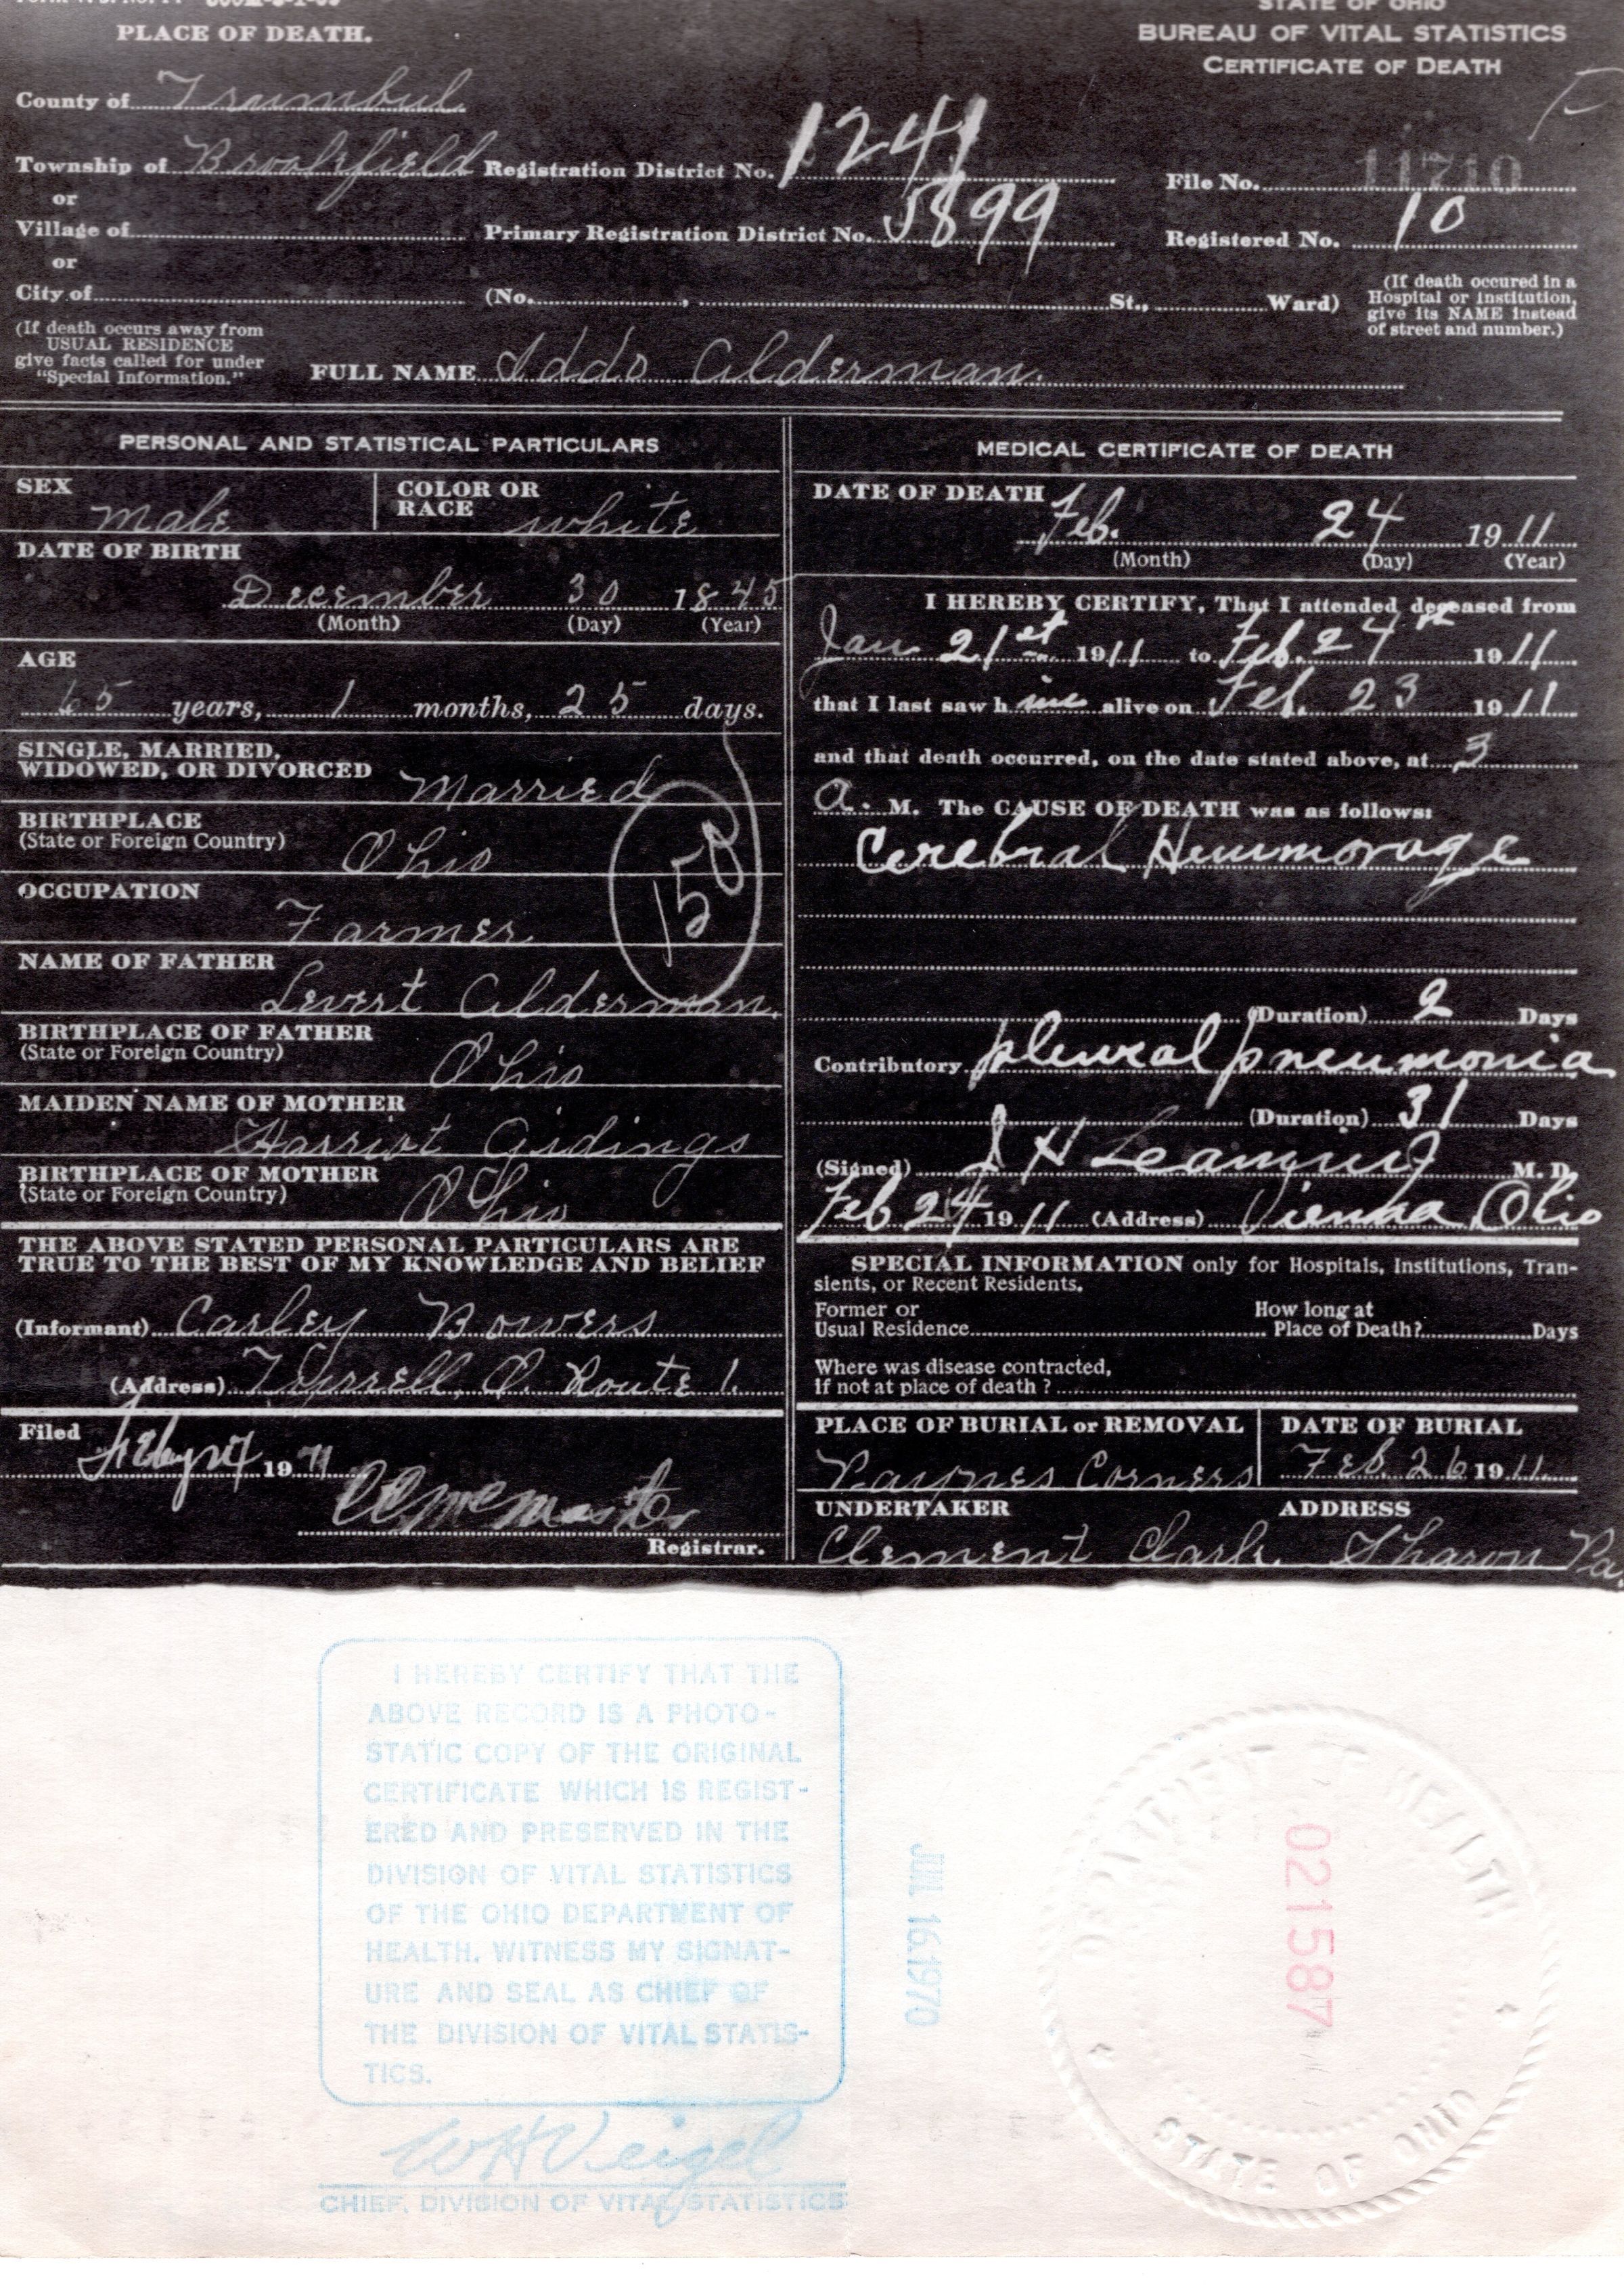 PLACE OF DEATH.
STATE OF OHIO
BUREAU OF VITAL STATISTICS
CERTIFICATE OF DEATH
F
County of Trumbul
Township of Brookfield Registration District No. 1241 File No. 11710
or
Village of Primary Registration District No. 5899 Registered No. 10
or
City of (No. , St., Ward) (If death occured in a
Hospital or Institution,
give its NAME instead
of street and number.)
(If death occurs away from
USUAL RESIDENCE
give facts called for under
"Special Information."
FULL NAME Iddo Alderman.
PERSONAL AND STATISTICAL PARTICULARS
SEX COLOR OR
RACE
male white
DATE OF BIRTH
December 30 1845
(Month) (Day) (Year)
AGE
65 years, 1 months, 25 days.
SINGLE, MARRIED,
WIDOWED, OR DIVORCED Married
BIRTHPLACE
(State or Foreign Country) Ohio
150
OCCUPATION
Farmer.
NAME OF FATHER
Levert Alderman.
BIRTHPLACE OF FATHER
(State or Foreign Country) Ohio
MAIDEN NAME OF MOTHER
Harriot Gidings
BIRTHPLACE OF MOTHER
(State or Foreign Country) Ohio
THE ABOVE STATED PERSONAL PARTICULARS ARE
TRUE TO THE BEST OF MY KNOWLEDGE AND BELIEF
(Informant) Carley Bowers
(Address) Tyrrell, O. Route 1.
Filed
Feby 24 1911
Registrar.
MEDICAL CERTIFICATE OF DEATH
DATE OF DEATH
Feb. 24 1911
(Month) (Day) (Year)
I HEREBY CERTIFY, That I attended deceased from
Jan 21st 1911 to Feb. 24th 1911
that I last saw him alive on Feb. 23 1911
and that death occurred, on the date stated above, at 3
a. M. The CAUSE OF DEATH was as follows:
Cerebral Hemmorage
(Duration) 2 Days
Contributory pleural pneumonia
(Duration) 31 Days
(Signed) J H Leaming M. D.
Feb 24 1911 (Address) Vienna Ohio
SPECIAL INFORMATION only for Hospitals, Institutions, Tran-
sients, or Recent Residents.
Former or How long at
Usual Residence Place of Death? Days
Where was disease contracted,
If not at place of death ?
PLACE OF BURIAL or REMOVAL DATE OF BURIAL
Paynes Corners Feb. 26 1911
UNDERTAKER ADDRESS
Clement Clark. Sharon Pa.
I HEREBY CERTIFY THAT THE
ABOVE RECORD IS A PHOTO-
STATIC COPY OF THE ORIGINAL
CERTIFICATE WHICH IS REGIST-
ERED AND PRESERVED IN THE
DIVISION OF VITAL STATISTICS
OF THE OHIO DEPARTMENT OF
HEALTH. WITNESS MY SIGNAT-
URE AND SEAL AS CHIEF OF
THE DIVISION OF VITAL STATIS-
TICS.
W H Veigel
CHIEF, DIVISION OF VITAL STATISTICS
JUL 16 1970
DEPARTMENT OF HEALTH
021587
STATE OF OHIO